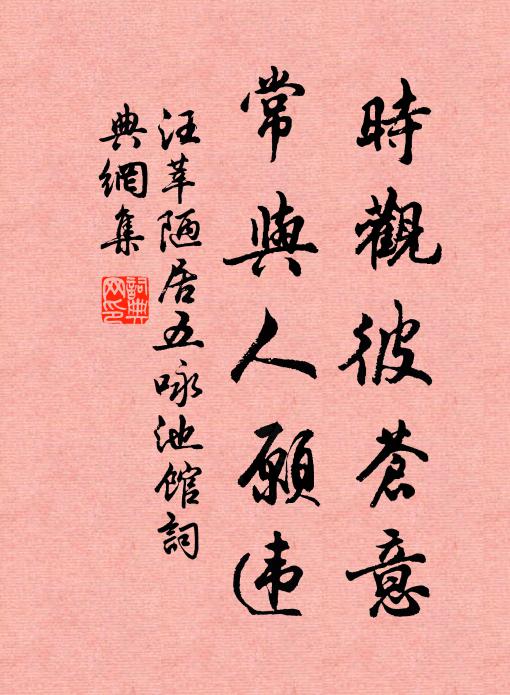 時觀彼蒼意
常與人願违
汪莘陋居五咏池馆詞
典網集
詞典
网印